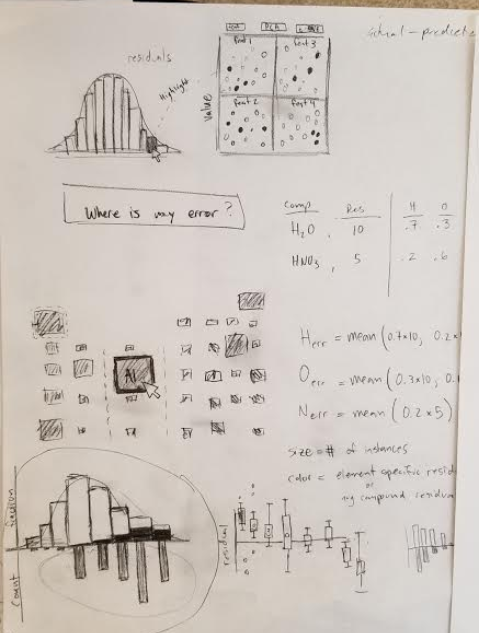 residuals
Highlight
PCA
feat 1
feat 3
feat 2
feat 4
value
actual - predicte
Where is my error?
Comp Res H O
H₂O, 10 .7 .3
HNO₃, 5 .2 .6
Al
Herr = mean (0.7x10, 0.2x
Oerr = mean (0.3x10, 0.
Nerr = mean (0.2x5)
size = # of instances
color = element specific resid
or
avg compound residua
fraction
Count
residual